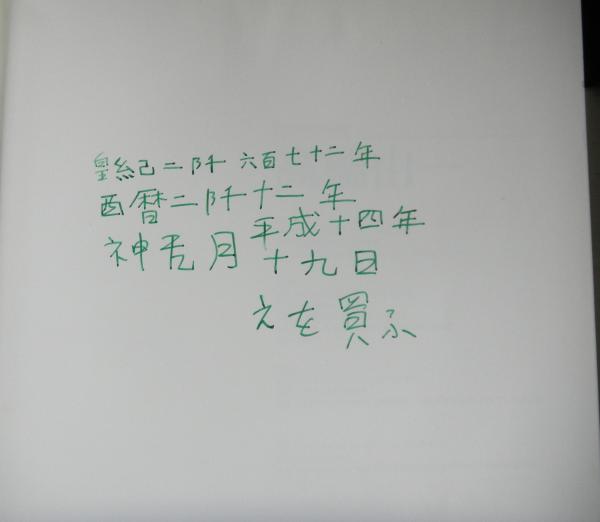 皇紀二阡六百七十二年
西暦二阡十二年
平成十四年
神无月十九日
之を買ふ